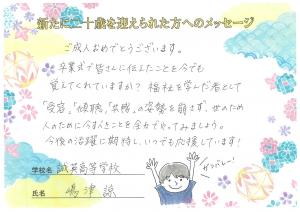 新たに二十歳を迎えられた方へのメッセージ
ご成人おめでとうございます。
卒業式で皆さんに伝えたことを今でも
覚えてくれていますか? 福祉を学んだ者として
「受容」「傾聴」「共感」の姿勢を崩さず、世のため
人のために今すべきことを全力でやってみましょう。
今後の活躍に期待し、いつでも応援しています!
ガンバレー!
学校名 誠英高等学校
氏名 嶋津 諭